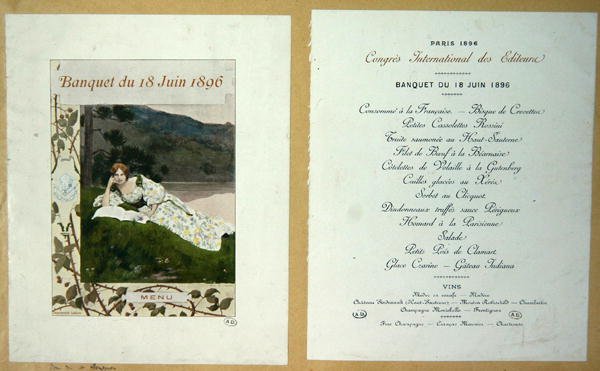 Banquet du 18 Juin 1896
MENU
A.D.
PARIS 1896
Congrès International des Editeurs
BANQUET DU 18 JUIN 1896
Consommé à la Française. — Bisque de Crevettes
Petites Cassolettes Rossini
Truite saumonée au Haut-Sauterne
Filet de Bœuf à la Béarnaise
Côtelettes de Volaille à la Gutenberg
Cailles glacées au Xérès
Sorbet au Clicquot
Dindonneaux truffés sauce Périgueux
Homard à la Parisienne
Salade
Petits Pois de Clamart
Glace Czarine — Gâteau Indiana
VINS
Madère en carafe — Médoc
Château (Haut-Sauternes) — Mouton Rothschild — Chambertin
Champagne — Frontignan
A.D.
A.D.
Fine Champagne — Curaçao — Chartreuse